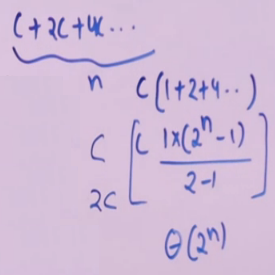 C+2C+4C...
n C(1+2+4..)
C [C 1×(2ⁿ-1) / 2-1]
2C
Θ(2ⁿ)